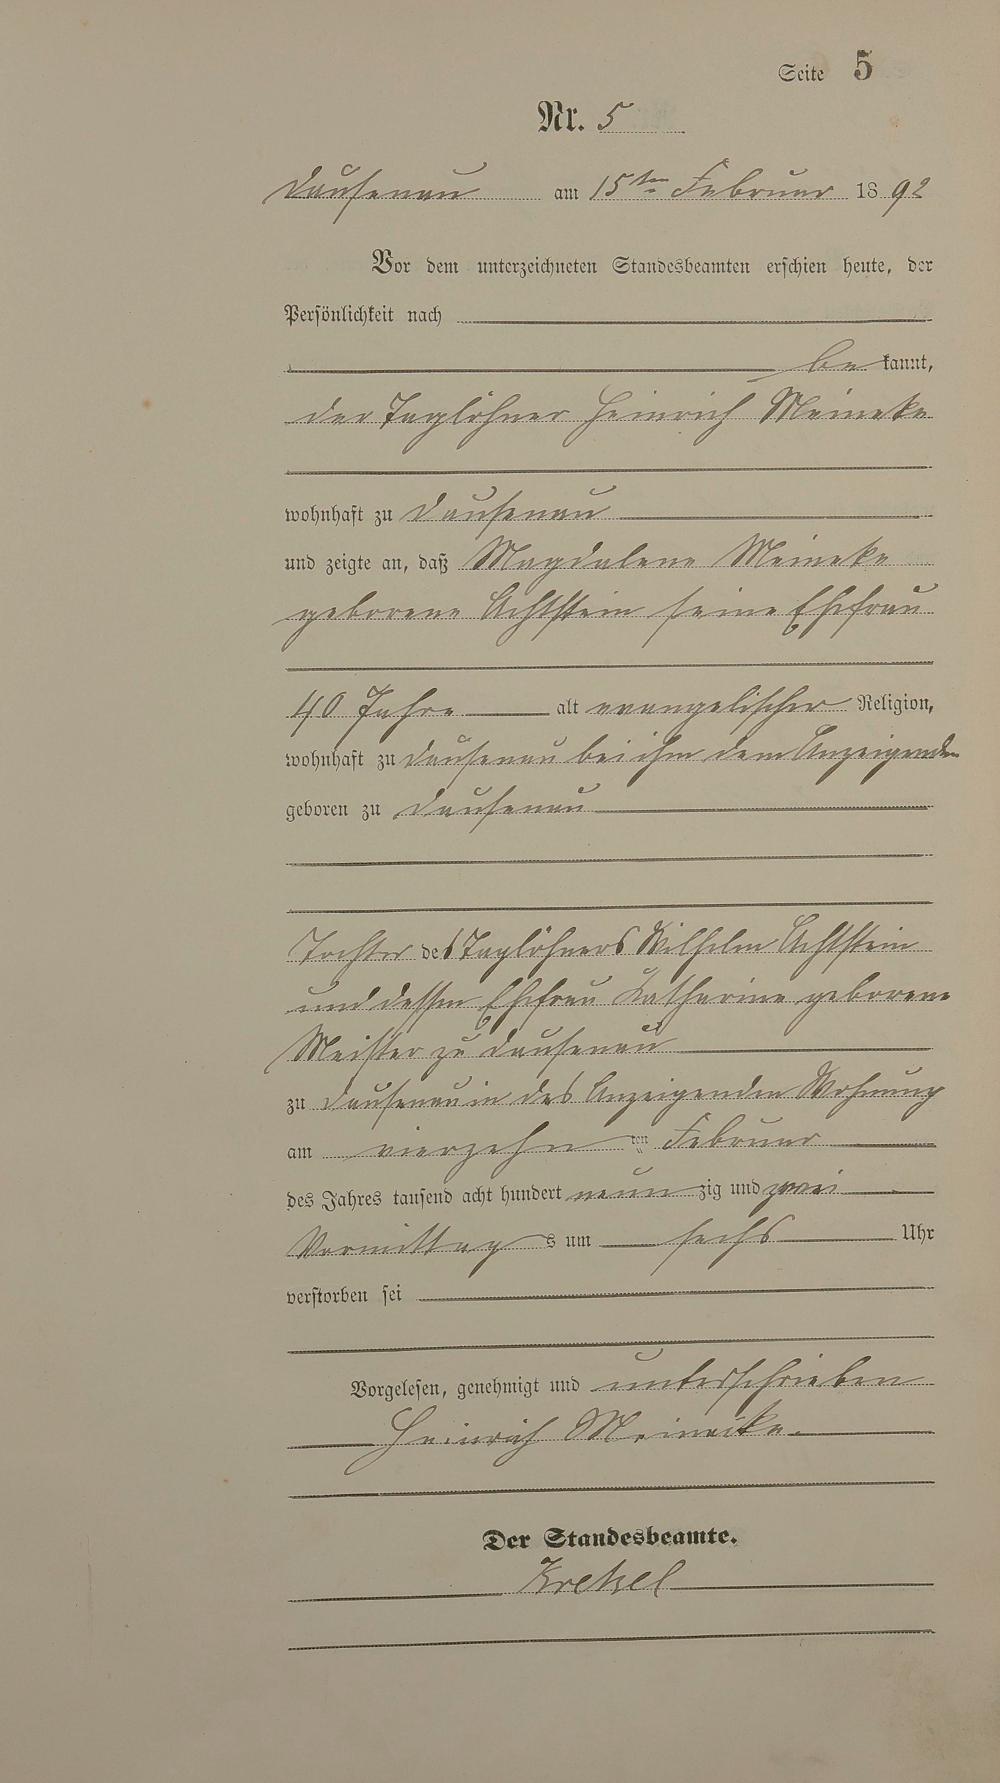 Seite 5
Nr. 5
Dausenau am 15ten Februar 1892
Vor dem unterzeichneten Standesbeamten erschien heute, der
Persönlichkeit nach
bekannt,
der Taglöhner Heinrich Meineke
wohnhaft zu Dausenau
und zeigte an, daß Magdalene Meineke
geborene Achtstein seine Ehefrau
40 Jahre alt evangelischer Religion,
wohnhaft zu Dausenau bei ihm dem Anzeigenden
geboren zu Dausenau
Tochter des Taglöhners Wilhelm Achtstein
und dessen Ehefrau Katharine geborene
Meister zu Dausenau
zu Dausenau in des Anzeigenden Wohnung
am vierzehn ten Februar
des Jahres tausend acht hundert neunzig und zwei
Vormittags um sechs Uhr
verstorben sei
Vorgelesen, genehmigt und unterschrieben
Heinrich Meinecke.
Der Standesbeamte.